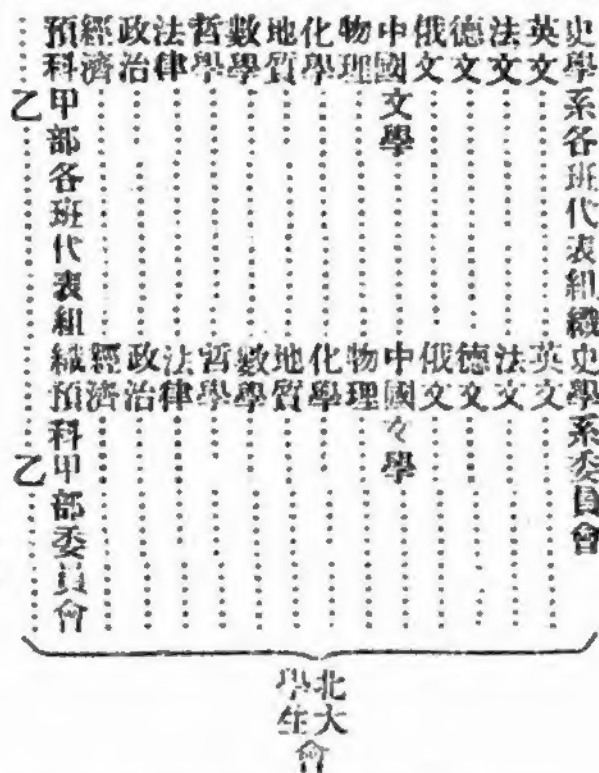 史學系各班代表組織史學系委員會
英文⋯⋯英文⋯⋯
法文⋯⋯法文⋯⋯
德文⋯⋯德文⋯⋯
俄文⋯⋯俄文⋯⋯
中國文學⋯⋯中國文學⋯⋯
物理⋯⋯物理⋯⋯
化學⋯⋯化學⋯⋯
地質⋯⋯地質⋯⋯
數學⋯⋯數學⋯⋯
哲學⋯⋯哲學⋯⋯
法律⋯⋯法律⋯⋯
政治⋯⋯政治⋯⋯
經濟⋯⋯經濟⋯⋯
預科甲部各班代表組織預科甲部委員會
乙⋯⋯乙⋯⋯
北大
學生會